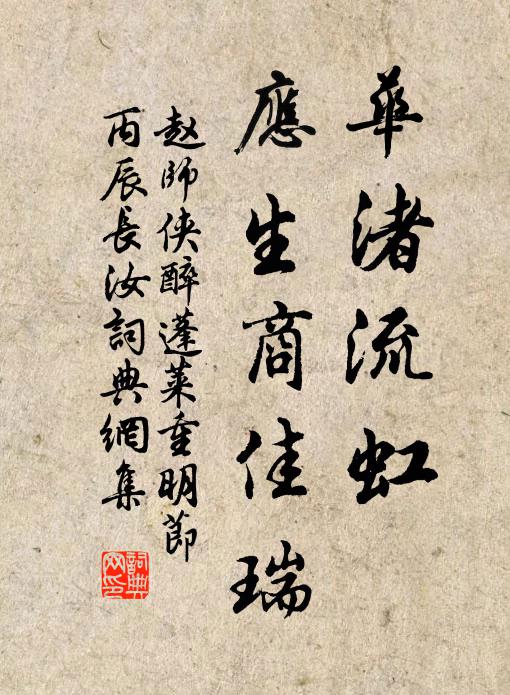 華渚流虹
應生商佳瑞
赵師侠醉蓬萊重明節
丙辰長汝詞典網集
詞典网印